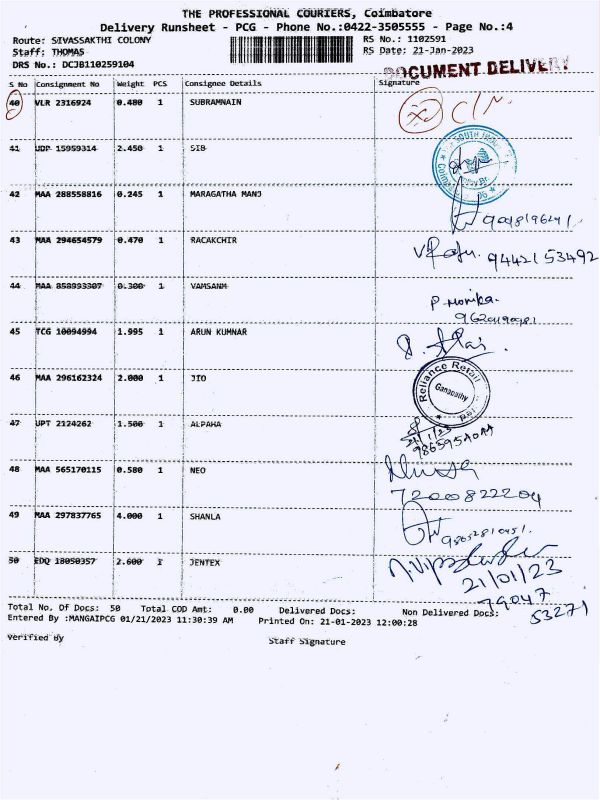 THE PROFESSIONAL COURIERS, Coimbatore
Delivery Runsheet - PCG - Phone No.:0422-3505555 - Page No.:4
Route: SIVASSAKTHI COLONY RS No.: 1102591
Staff: THOMAS RS Date: 21-Jan-2023
DRS No.: DCJB110259104 DOCUMENT DELIVERY
S No Consignment No Weight PCS Consignee Details Signature
40 VLR 2316924 0.480 1 SUBRAMNAIN
41 UDP 15959314 2.450 1 SIB
42 MAA 288558816 0.245 1 MARAGATHA MANJ
43 MAA 294654579 0.470 1 RACAKCHIR
9442153492
44 MAA 858993307 0.300 1 VAMSANM
P. Monika
45 TCG 10094994 1.995 1 ARUN KUMNAR
46 MAA 296162324 2.000 1 JIO
Reliance Retail Ltd
Ganapathy
47 UPT 2124262 1.500 1 ALPAHA
48 MAA 565170115 0.580 1 NEO
7200822204
49 MAA 297837765 4.000 1 SHANLA
50 EDQ 18050357 2.600 1 JENTEX
21/01/23
79047
53271
Total No. Of Docs: 50 Total COD Amt: 0.00 Delivered Docs: Non Delivered Docs:
Entered By :MANGAIPCG 01/21/2023 11:30:39 AM Printed On: 21-01-2023 12:00:28
Verified By Staff Signature